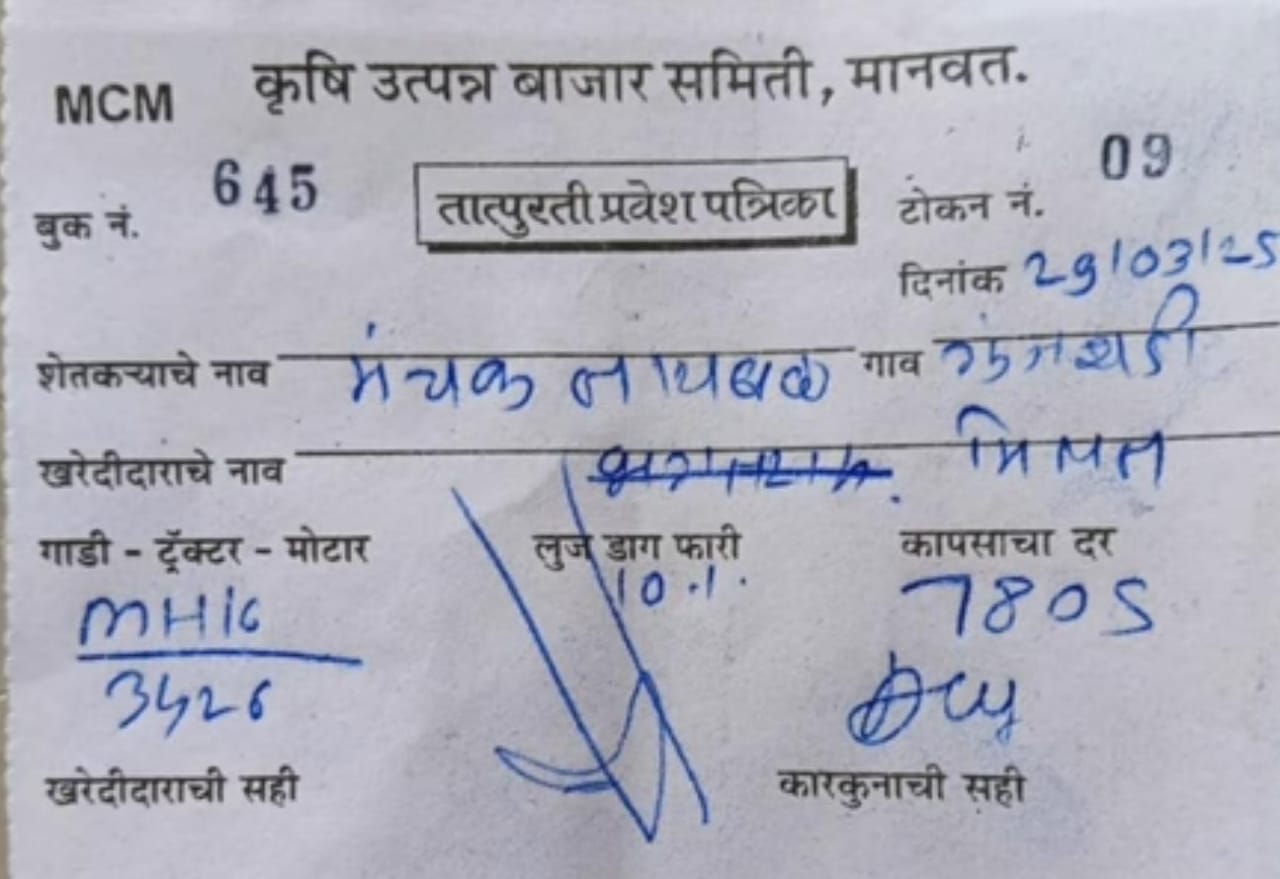 MCM कृषि उत्पन्न बाजार समिती, मानवत.
बुक नं. 645 तात्पुरती प्रवेश पत्रिका टोकन नं. 09
दिनांक 29/03/25
शेतकऱ्याचे नाव मंचक गाव
खरेदीदाराचे नाव
गाडी - ट्रॅक्टर - मोटार लुज डाग फारी कापसाचा दर
MH16 10.1. 7805
3426
खरेदीदाराची सही कारकुनाची सही